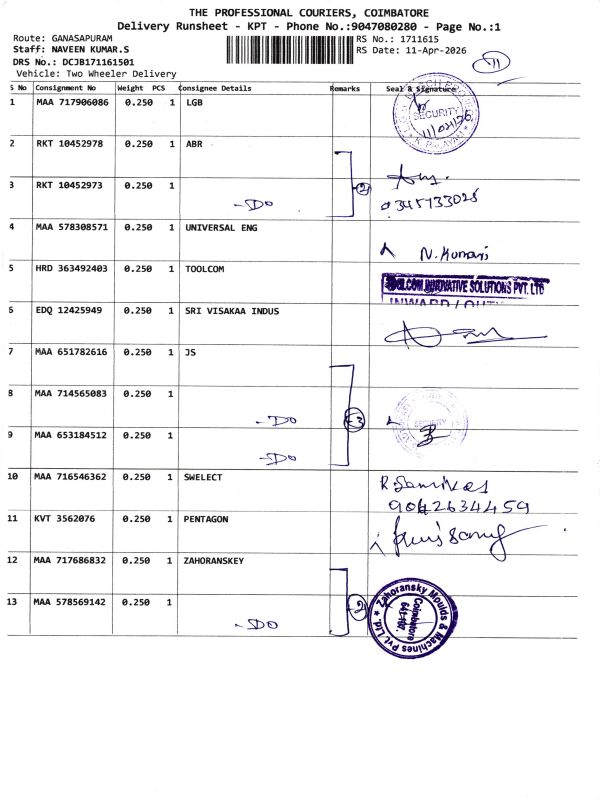 THE PROFESSIONAL COURIERS, COIMBATORE
Delivery Runsheet - KPT - Phone No.:9047080280 - Page No.:1
Route: GANASAPURAM RS No.: 1711615
Staff: NAVEEN KUMAR.S RS Date: 11-Apr-2026
DRS No.: DCJB171161501 11
Vehicle: Two Wheeler Delivery
S No Consignment No Weight PCS Consignee Details Remarks Seal & Signature
1 MAA 717906086 0.250 1 LGB
SECURITY
2 RKT 10452978 0.250 1 ABR
3 RKT 10452973 0.250 1 2
-Do 9345133025
4 MAA 578308571 0.250 1 UNIVERSAL ENG
N. Kumari
5 HRD 363492403 0.250 1 TOOLCOM
TOOLCOM INNOVATIVE SOLUTIONS PVT. LTD
6 EDQ 12425949 0.250 1 SRI VISAKAA INDUS
7 MAA 651782616 0.250 1 JS
8 MAA 714565083 0.250 1
-Do 3 SECURITY
9 MAA 653184512 0.250 1
-Do
10 MAA 716546362 0.250 1 SWELECT
9042634459
11 KVT 3562076 0.250 1 PENTAGON
12 MAA 717686832 0.250 1 ZAHORANSKEY
13 MAA 578569142 0.250 1 2
-Do
Zahoransky Moulds & Machines Pvt Ltd
Coimbatore
641 107.